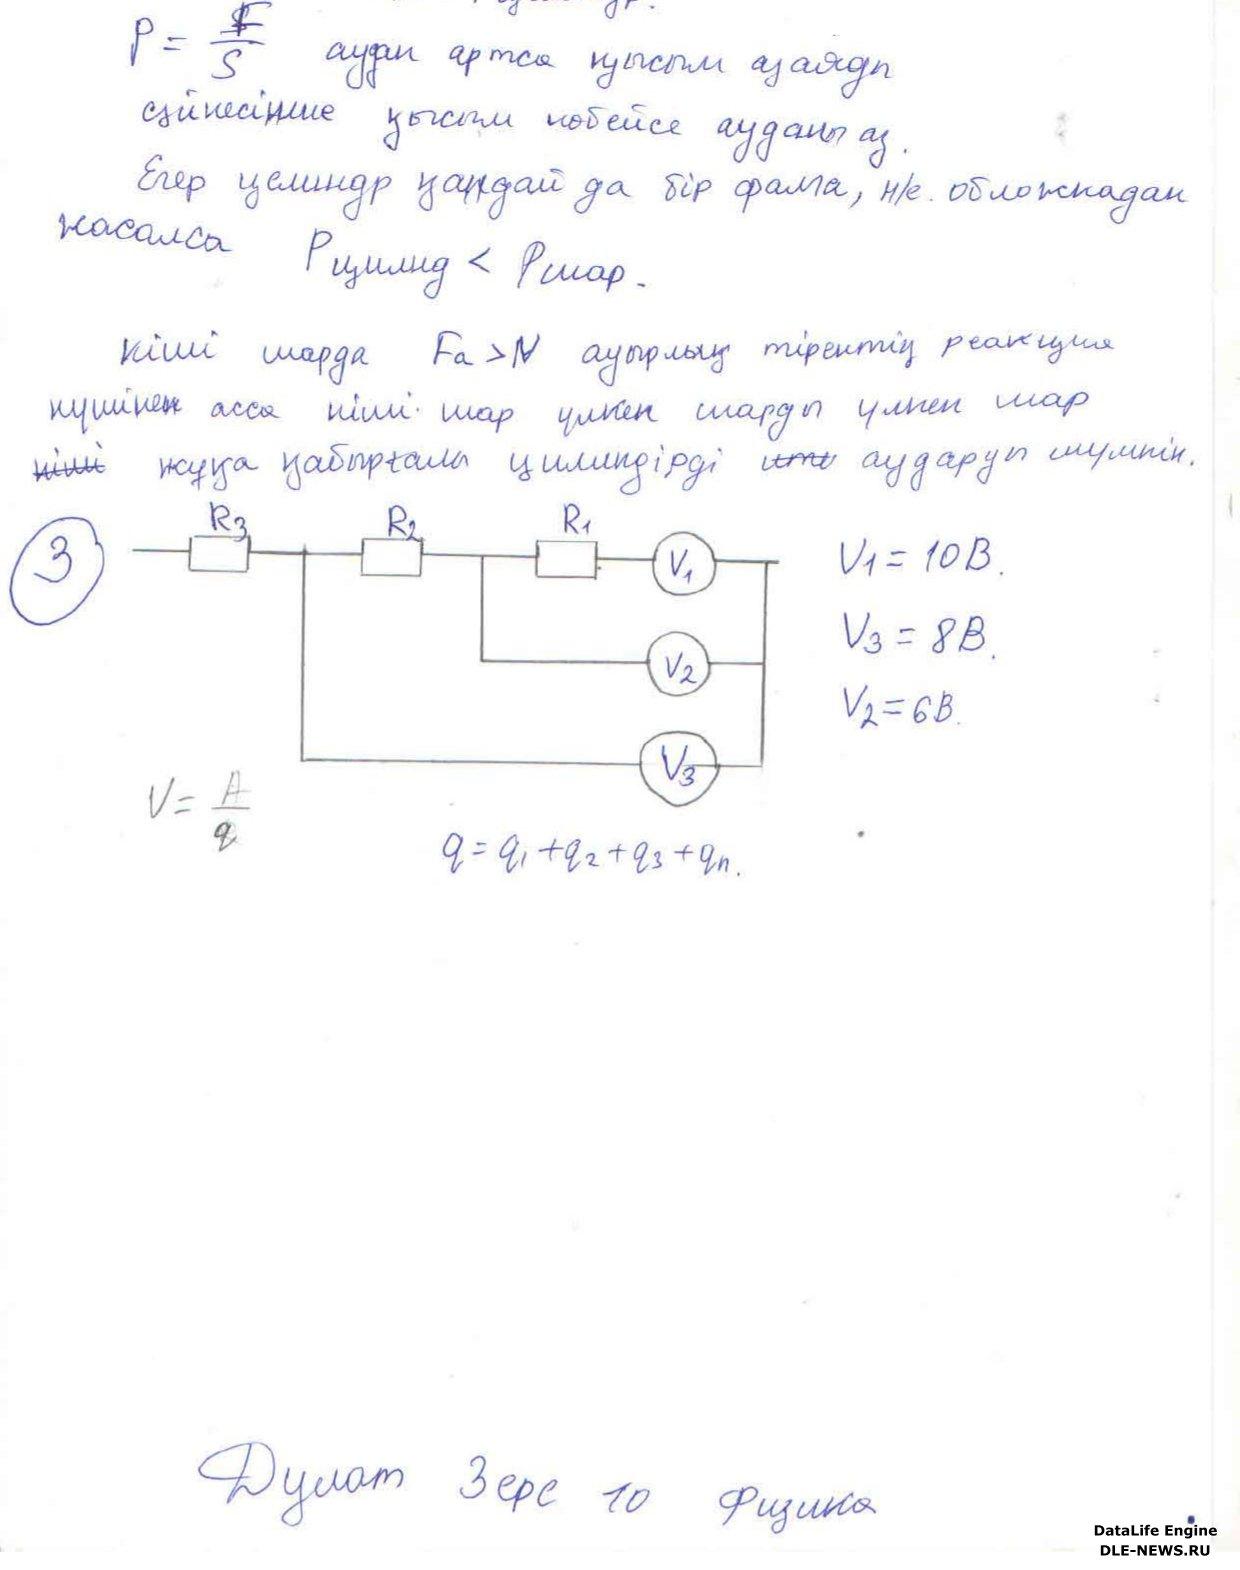 P = F/S аудан артса қысым азаяды
сәйкесінше қысым көбейсе ауданы аз.
Егер целиндр қандай да бір фалга, н/е. обложкадан
жасалса Рцилинд < Ршар.
Кіші шарда Fа > N ауырлық тіректің реакция
күшінен асса кіші шар үлкен шарды үлкен шар
кіші жұқа қабырғалы цилиндірді аударуы мүмкін.
3
R3 R2 R1
V1 V1 = 10В.
V2 V3 = 8В.
V2 = 6В.
V3
V = A/q
q = q1 + q2 + q3 + qn.
Дулат Зере 10 Физика
DataLife Engine
DLE-NEWS.RU